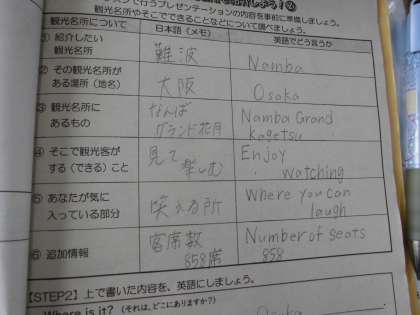 行うプレゼンテーションの内容を事前に準備しましょう。
観光名所やそこでできることなどについて調べましょう。
観光名所について 日本語（メモ） 英語でどう言うか
① 紹介したい
観光名所 難波 Namba
② その観光名所が
ある場所（地名） 大阪 Osaka
③ 観光名所に
あるもの なんば
グランド花月 Namba Grand
kagetsu
④ そこで観光客が
する（できる）こと 見て
楽しむ Enjoy
watching
⑤ あなたが気に
入っている部分 笑える所 Where you can
laugh
⑥ 追加情報 客席数
858席 Number of seats
858
【STEP2】上で書いた内容を、英語にしましょう。
Where is it?（それは、どこにありますか？）
Osaka